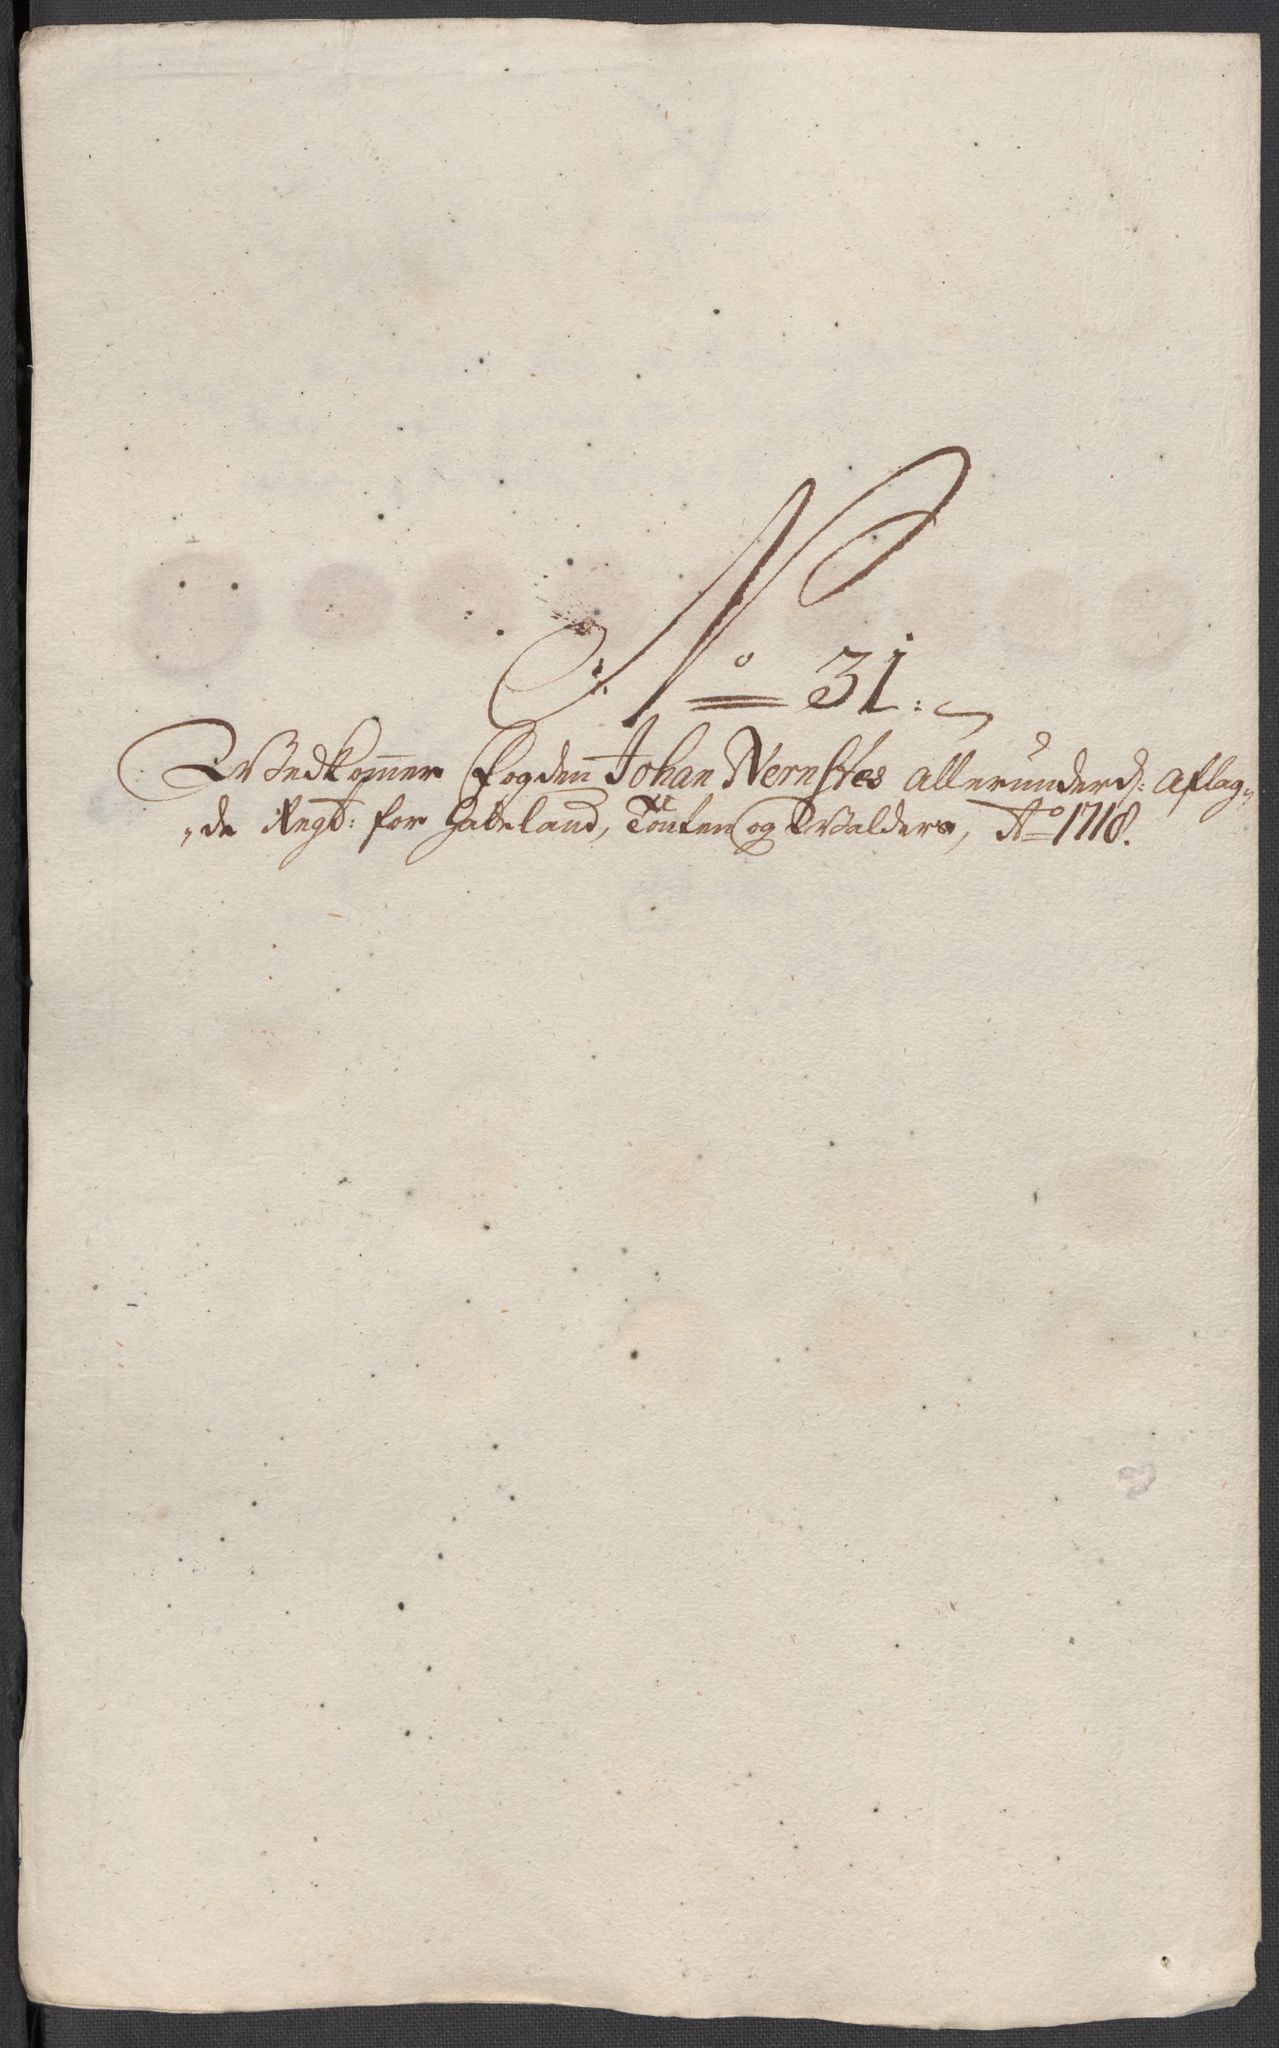 No 31.
Vedkommer Fogden Johan Nernstes allerunderd: aflag-
de Regb: for Hadeland, Toten og Valders, Ao 1718.